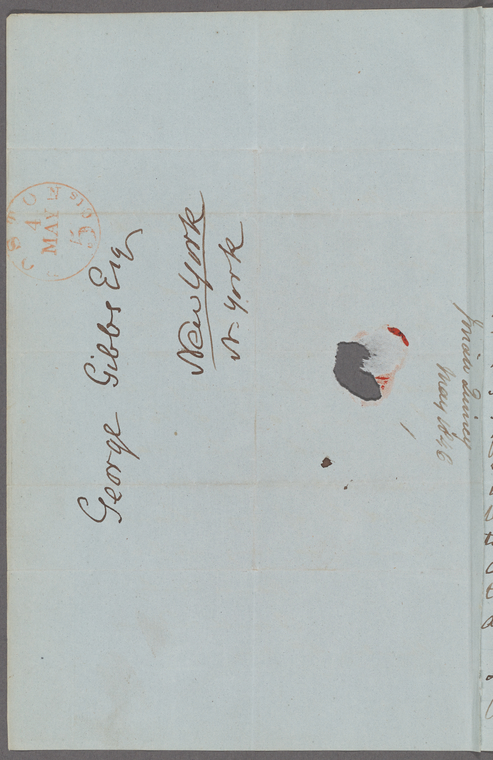 George Gibbs Esq
New York
N. York
BOSTON
4
MAY
Josiah Quincy
May 1846